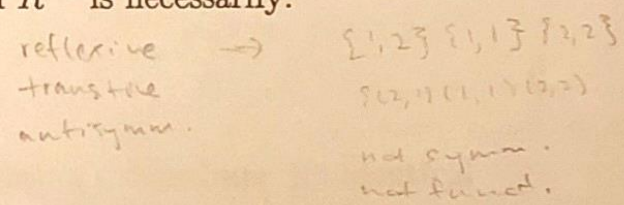 R is necessarily:
reflexive → {1,2} {1,1} {2,2}
transitive {(2,1) (1,1) (2,2)
antisymm.
not symm.
not funct.